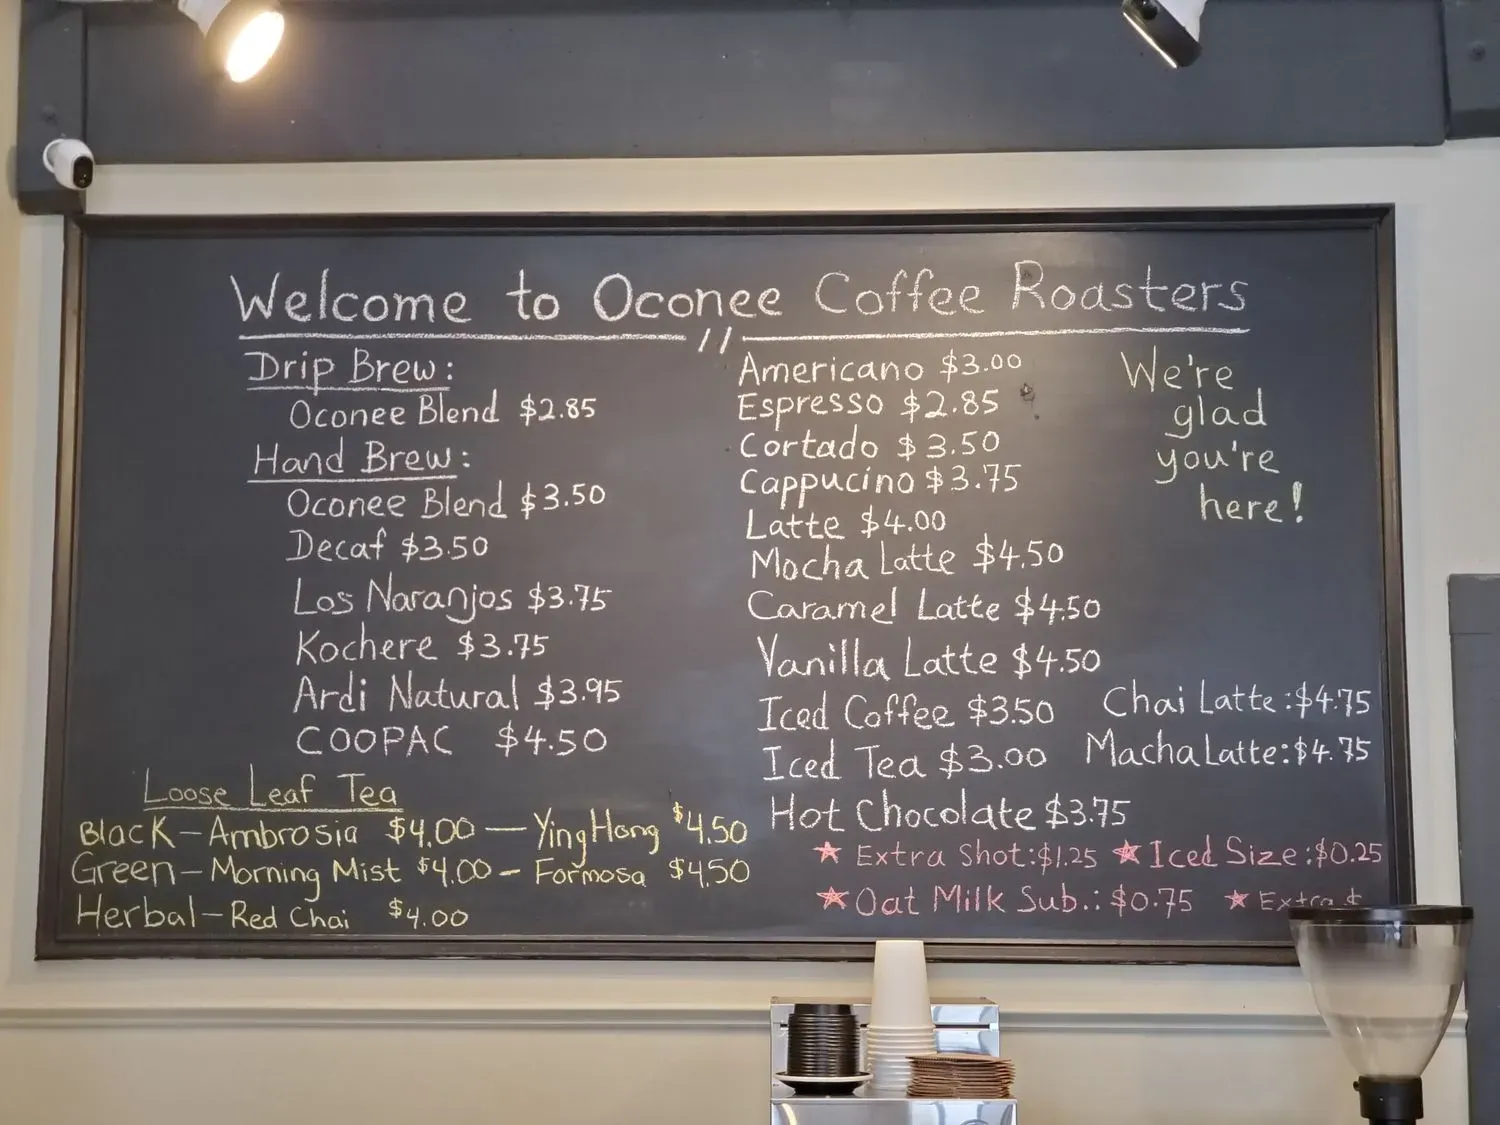 Welcome to Oconee Coffee Roasters
Drip Brew:
Oconee Blend $2.85
Hand Brew:
Oconee Blend $3.50
Decaf $3.50
Los Naranjos $3.75
Kochere $3.75
Ardi Natural $3.95
COOPAC $4.50
Loose Leaf Tea
Black - Ambrosia $4.00 — Ying Hong $4.50
Green - Morning Mist $4.00 - Formosa $4.50
Herbal - Red Chai $4.00
Americano $3.00
Espresso $2.85
Cortado $3.50
Cappucino $3.75
Latte $4.00
Mocha Latte $4.50
Caramel Latte $4.50
Vanilla Latte $4.50
Iced Coffee $3.50
Iced Tea $3.00
Hot Chocolate $3.75
We're
glad
you're
here!
Chai Latte: $4.75
Macha Latte: $4.75
★ Extra Shot: $1.25 ★ Iced Size: $0.25
★ Oat Milk Sub.: $0.75 ★ Extra